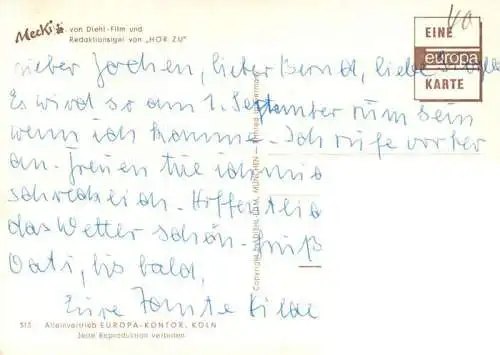 Mecki
von Diehl-Film und
Redaktionsigel von „HÖR ZU"
10
EINE
europa
KARTE
Lieber Jochen, lieber Bernd, liebe
Es wird so am 1. September rum sein
wenn ich komme. Ich rufe vorher
an. Freuen tue ich mich
schrecklich. Hoffentlich
das Wetter schön. Gruß
Vati, bis bald,
Eure Tante Hilde
Copyright by DIEHL-FILM, MÜNCHEN
313 Alleinvertrieb EUROPA-KONTOR, KÖLN
Jede Reproduktion verboten.